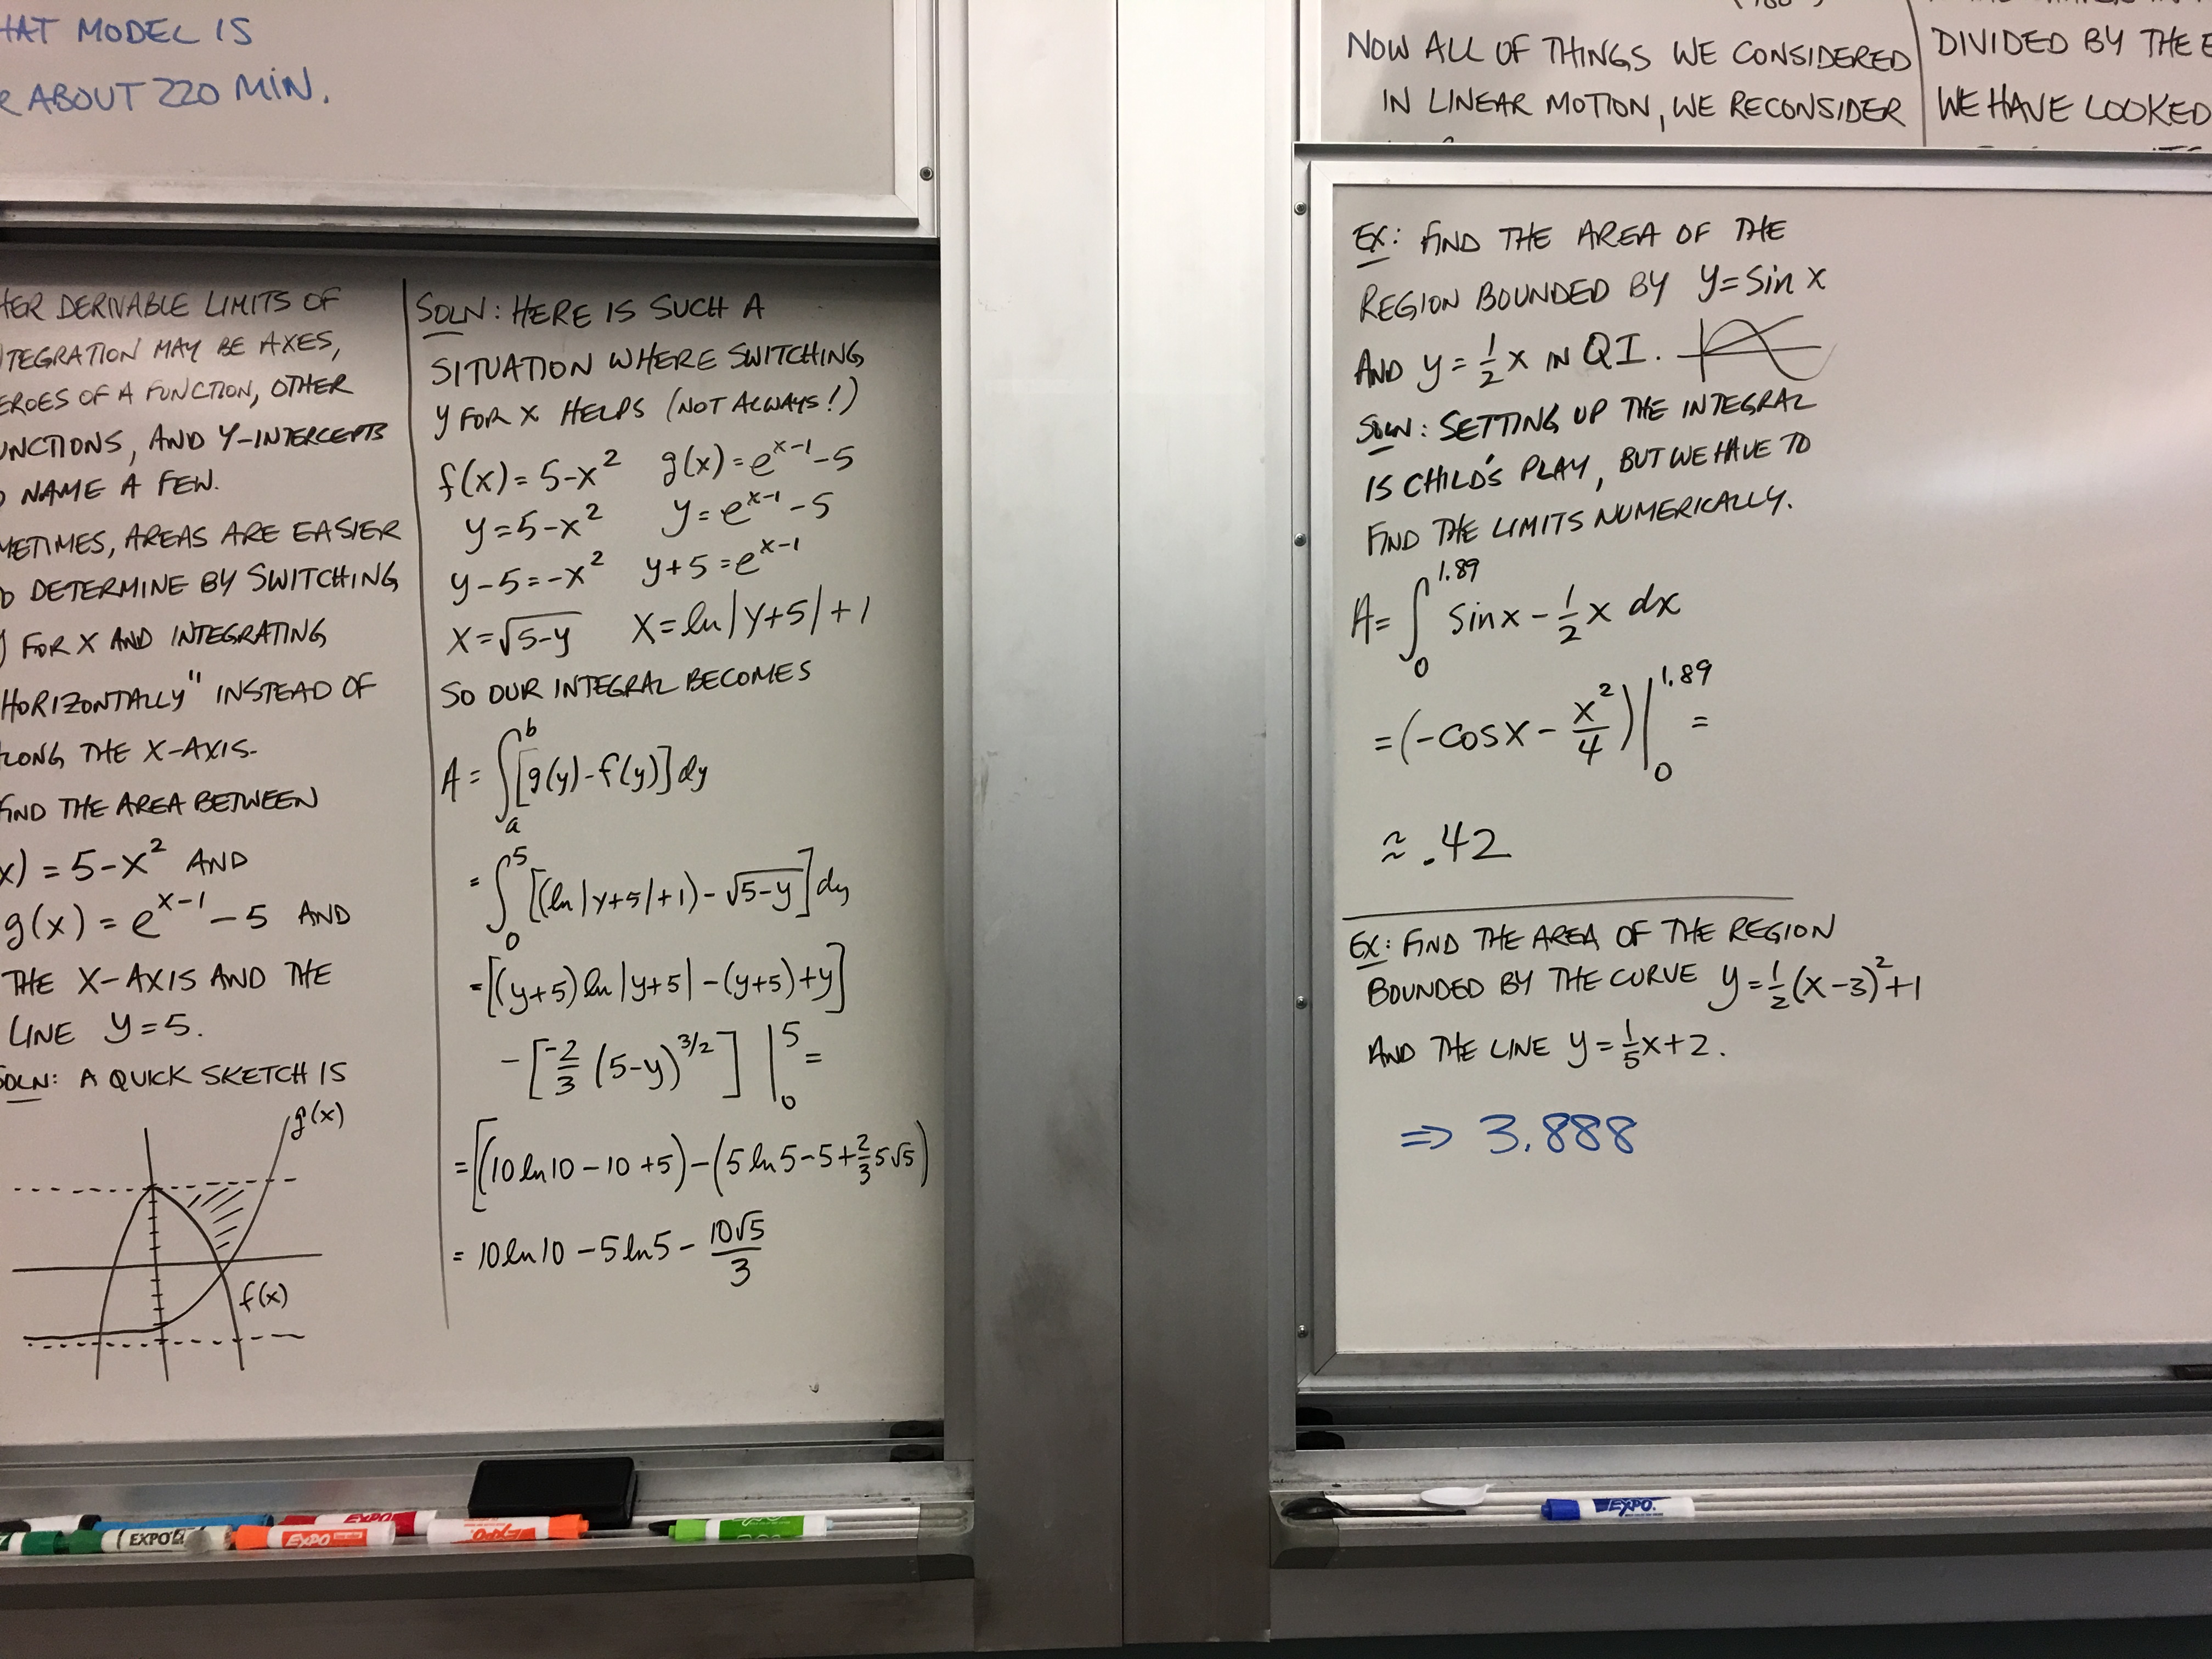 HAT MODEL IS
R ABOUT 220 MIN.
HER DERIVABLE LIMITS OF
NTEGRATION MAY BE AXES,
EROES OF A FUNCTION, OTHER
UNCTIONS, AND Y-INTERCEPTS
O NAME A FEW.
METIMES, AREAS ARE EASIER
O DETERMINE BY SWITCHING
Y FOR X AND INTEGRATING
HORIZONTALLY" INSTEAD OF
LONG THE X-AXIS.
FIND THE AREA BETWEEN
x) = 5-x² AND
g(x) = e^{x-1} - 5 AND
THE X-AXIS AND THE
LINE y=5.
SOLN: A QUICK SKETCH IS
g(x)
f(x)
SOLN: HERE IS SUCH A
SITUATION WHERE SWITCHING
y FOR X HELPS (NOT ALWAYS!)
f(x) = 5-x² g(x) = e^{x-1} - 5
y = 5-x² y = e^{x-1} - 5
y-5 = -x² y+5 = e^{x-1}
x = √(5-y) x = ln|y+5| + 1
SO OUR INTEGRAL BECOMES
A = ∫_a^b [g(y) - f(y)] dy
= ∫_0^5 [(ln|y+5|+1) - √(5-y)] dy
= [(y+5) ln|y+5| - (y+5) + y]
- [-2/3 (5-y)^{3/2}] |_0^5 =
= [(10 ln10 - 10 + 5) - (5 ln5 - 5 + 2/3 5√5)
= 10 ln10 - 5 ln5 - 10√5/3
NOW ALL OF THINGS WE CONSIDERED
IN LINEAR MOTION, WE RECONSIDER
DIVIDED BY THE E
WE HAVE LOOKED
EX: FIND THE AREA OF THE
REGION BOUNDED BY y = sin x
AND y = 1/2 x IN QI.
SOLN: SETTING UP THE INTEGRAL
IS CHILD'S PLAY, BUT WE HAVE TO
FIND THE LIMITS NUMERICALLY.
A = ∫_0^{1.89} sin x - 1/2 x dx
= (-cos x - x²/4) |_0^{1.89} =
≈ .42
EX: FIND THE AREA OF THE REGION
BOUNDED BY THE CURVE y = 1/2 (x-3)² + 1
AND THE LINE y = 1/5 x + 2.
⇒ 3.888
EXPO
EXPO
EXPO
EXPO
EXPO